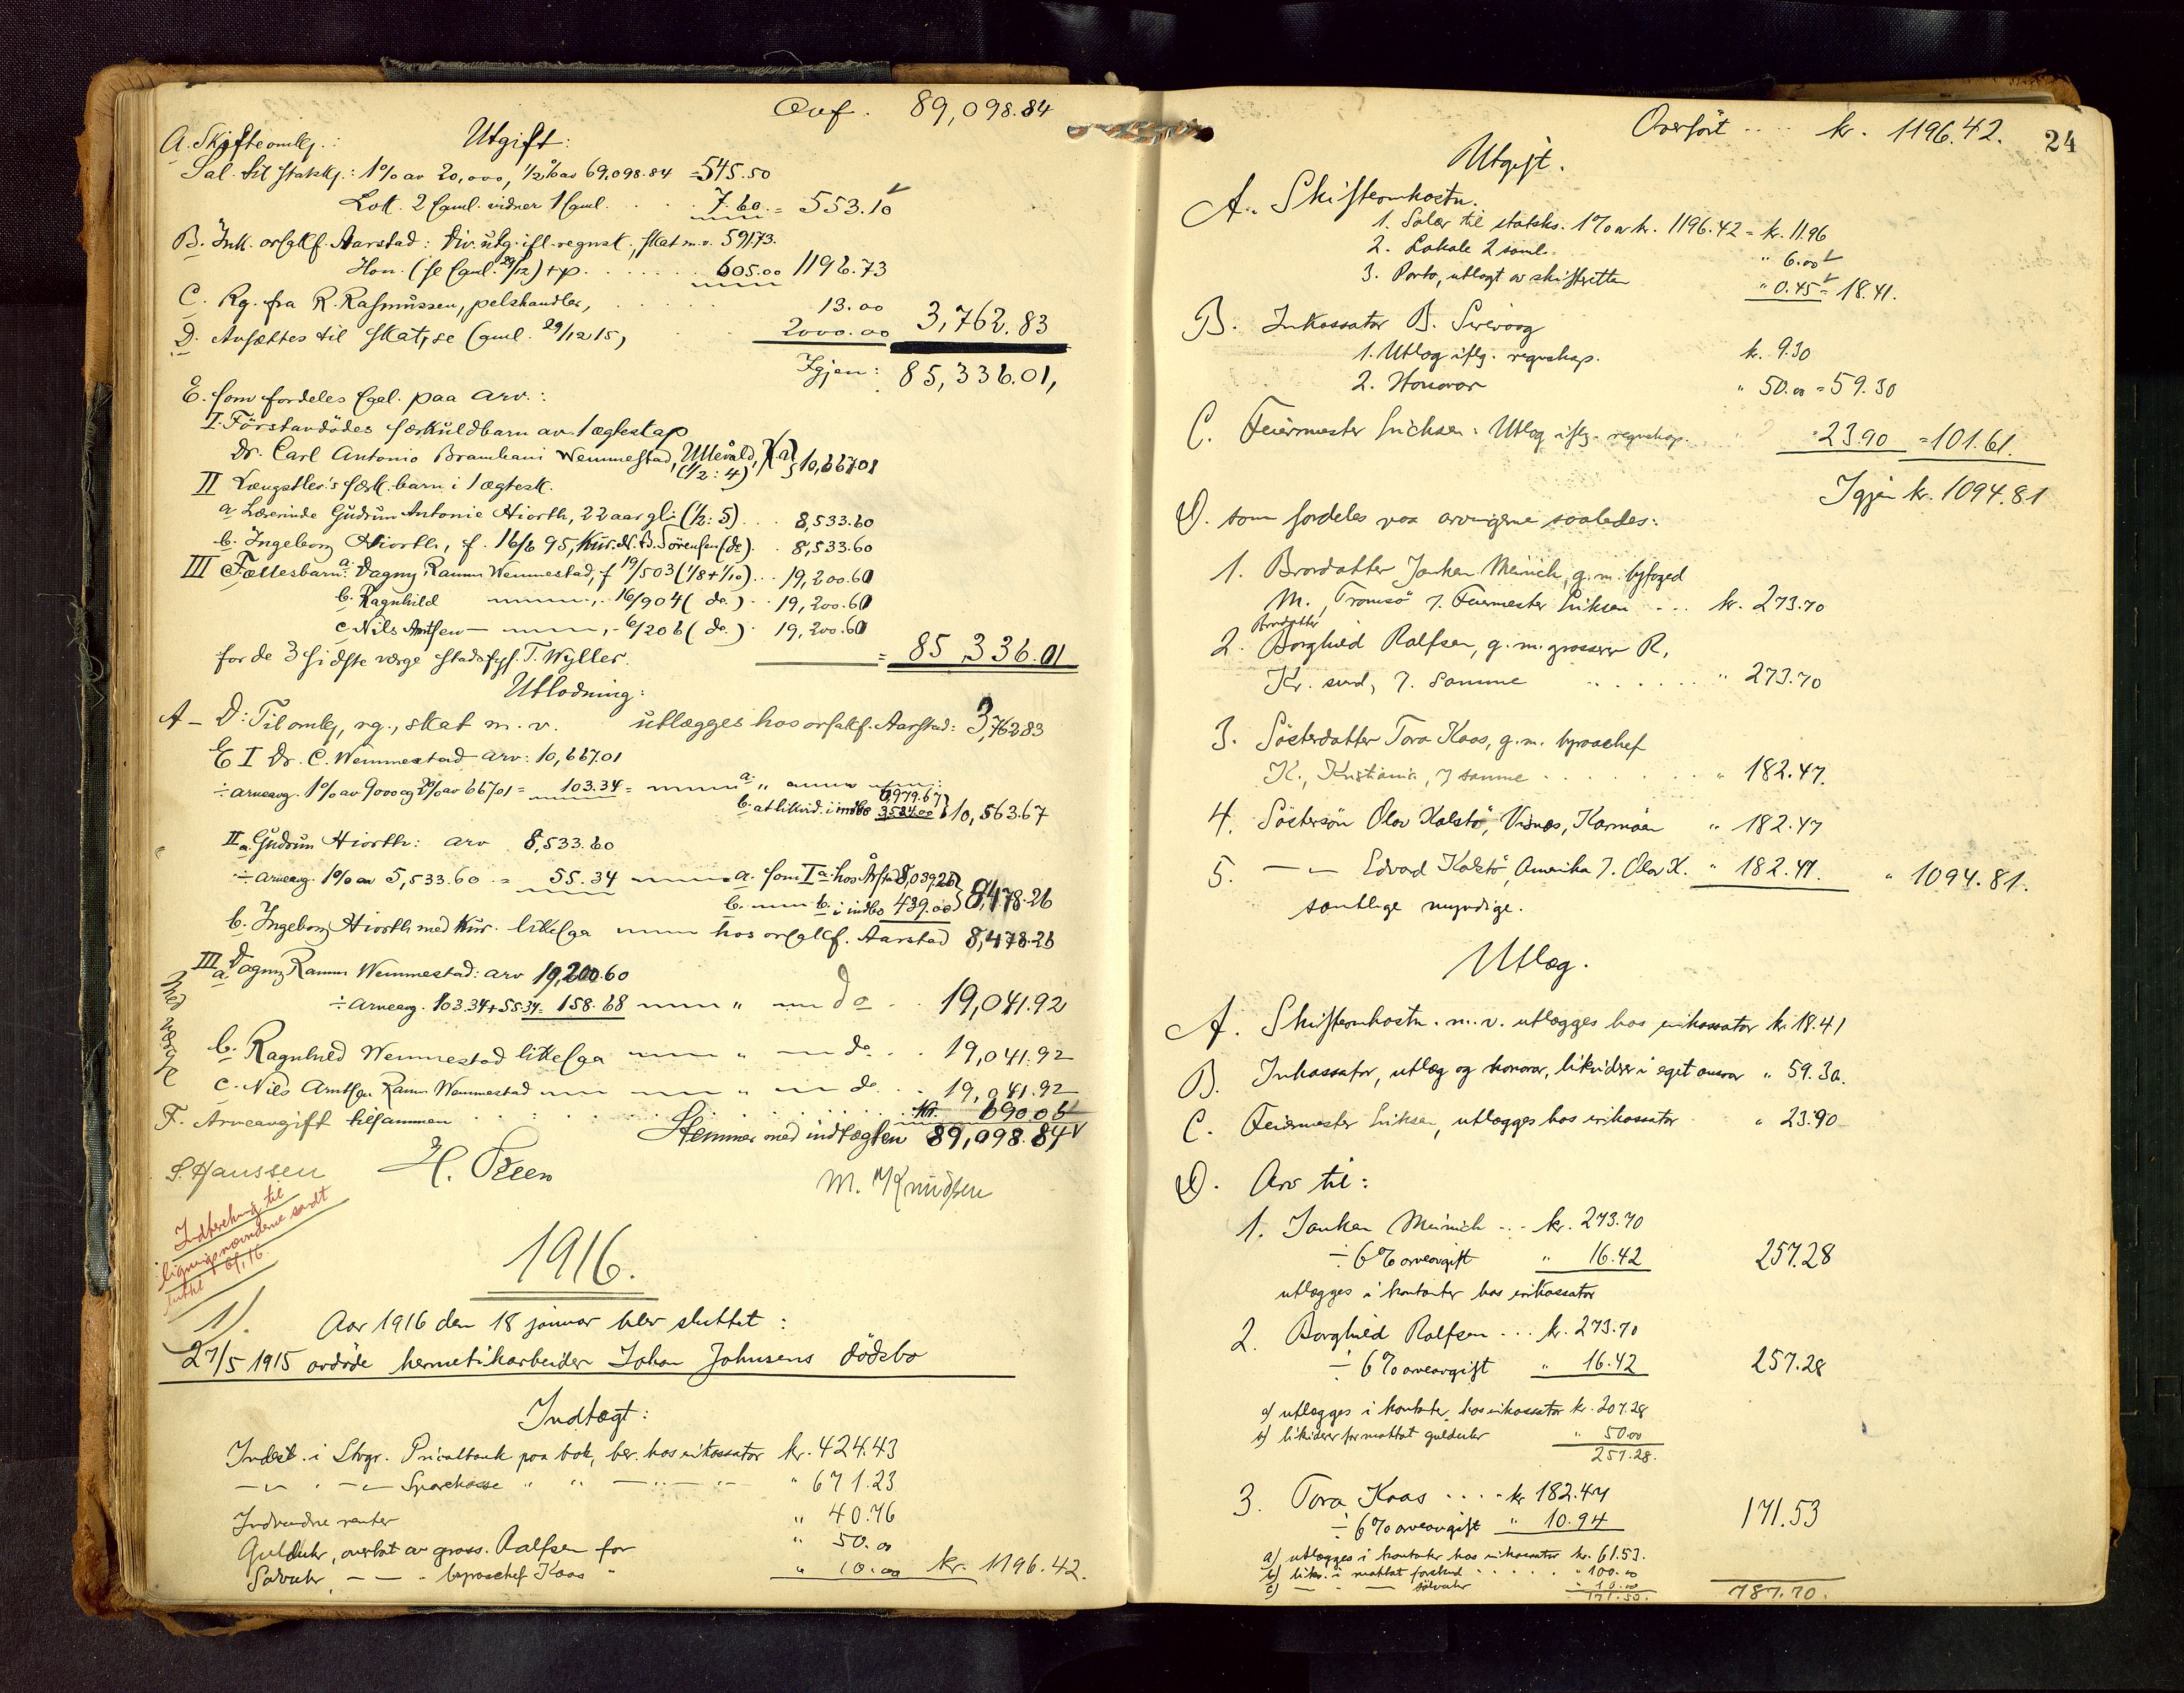 Ovf. 89,098.84
A. Skifteomkg.: Utgift:
Sal. til statsk.: 1% av 20,000, 1/2% av 69,098.84 = 545.50
Lok. 2 saml. vidner 1 saml. . . 7.60 = 553.10
B. Ink. orsakf. Aarstad: Div. utg. ifl. regnsk., skat m.v. 591.73.
Hon. (se saml. 29/12) + p. . . . . 605.00 1196.73
C. Rg. fra R. Rasmussen, pelshandler, . . . . 13.00
D. Avsættes til skat, se saml. 29/12 15, . . 2000.00 3,762.83
Igjen: 85,336.01,
E. som fordeles saal. paa arv.:
I. Förstavdödes særkuldbarn av 1 ægteskap
Dr. Carl Antonio Brambani Wemmestad, Ullevåld, (1/2:4) 10,667.01
II Længstlev's særk. barn i 1 ægtesk.
a Lærerinde Gudrun Antonie Hiorth, 22 aar gl. (1/2:5) . . 8,533.60
b. Ingeborg Hiorth, f. 16/6 95, kur. N. B. Sörensen (do) . . 8,533.60
III Fællesbarn: a. Dagny Ramm Wemmestad, f 19/5 03 (1/8 + 1/10) . . 19,200.60
b. Ragnhild — , - 16/9 04 (do.) . . 19,200.60
c Nils Arntsen — , - 6/2 06 (do.) . 19,200.60
for de 3 sidste værge stadsfys. T. Wyller. = 85,336.01
Utlodning:
A – D: Til omkg, rg., skat m. v. utlægges hos orsakf. Aarstad: 3,762.83
E I Dr. C. Wemmestad arv: 10,667.01
÷ arveavg. 1% av 9000 og 2% av 667.01 = 103.34 = a. 6,979.67
b. at likvid. i indbo 3584.00 } 10,563.67
II a. Gudrun Hiorth: arv 8,533.60
÷ arveavg. 1% av 5,533.60 = 55.34 a. som I a: hos Årstad 8,039.26
b. b. i indbo 439.00 } 8,478.26
b. Ingeborg Hiorth med kur. likesaa hos orsakf. Aarstad 8,478.26
III a. Dagny Ramm Wemmestad: arv 19,200.60
÷ arveavg. 103.34 + 55.34 = 158.68 " do . . 19,041.92
b. Ragnhild Wemmestad likesaa " do. . . 19,041.92
c. Nils Arntsen Ramm Wemmestad " do . . 19,041.92
Med værge
F. Arveavgift tilsammen . . . . . . . Kr. 690.06
Stemmer med indtægten 89,098.84
S. Hanssen H. Steen M. Knudsen
Indberetning til
ligningsnævndene sendt
1/16.
1916.
1).
Aar 1916 den 18 januar blev sluttet:
27/5 1915 avdöde hermetikarbeider Johan Johnsens dödsbo
Indtægt:
Indest. i Stvgr. Privatbank paa bok, ber. hos inkassator kr. 424.43
— " — Sparekasse " " — " — " 671.23
Indvundne renter " 40.76
Gulduhr, overlat av gross. Ralfsen for " 50.00
Sölvuhr, — — " byraachef Kaas " " 10.00 kr. 1196.42.
24
Overført .... kr. 1196.42.
Utgift.
A. Skifteomkostn.
1. Salær til statsk. 1% av kr. 1196.42 = kr. 11.96
2. Lokale 2 saml. " 6.00
3. Porto, utlagt av skifteretten " 0.45 = 18.41.
B. Inkassator B. Sirevaag
1. Utlæg iflg. regnskap. kr. 9.30
2. Honorar " 50.00 = 59.30
C. Feiermester Eriksen: Utlæg iflg. regnskap. " 23.90 = 101.61.
Igjen kr. 1094.81
D. som fordeles paa arvingerne saaledes:
1. Brordatter Janken Meinich, g. m. byfoged
M., Tromsö v. Feiermester Eriksen ... kr. 273.70
Brordatter
2. Borghild Ralfsen, g. m. grosserer R,
Kr. sund, v. samme . . . . . . " 273.70
3. Søsterdatter Tora Kaas, g. m. byraachef
K., Kristiania, v samme . . . . . " 182.47.
4. Søstersøn Olav Kalstö, Visnes, Karmöen " 182.47
5. — " — Edvard Kalstö, Amerika v. Olav K. " 182.47. " 1094.81.
samtlige myndige.
Utlæg.
A. Skifteomkostn. m. v. utlægges hos inkassator kr. 18.41
B. Inkassator, utlæg og honorar, likviderer i eget ansvar " 59.30.
C. Feiermester Eriksen, utlægges hos inkassator " 23.90
D. Arv til:
1. Janken Meinich ... kr. 273.70
÷ 6% arveavgift " 16.42 257.28
utlægges i kontanter hos inkassator
2. Borghild Ralfsen ... kr. 273.70
÷ 6% arveavgift " 16.42 257.28
a) utlægges i kontanter hos inkassator kr. 207.28
b) likviderer for mottat gulduhr " 50.00
257.28.
3. Tora Kaas .... kr 182.47
÷ 6% arveavgift " 10.94 171.53
a) utlægges i kontanter hos inkassator kr. 61.53.
b) likv. i mottat forskud . . . . . " 100.00
c) — " — sölvuhr " 10.00
171.53. 787.70.